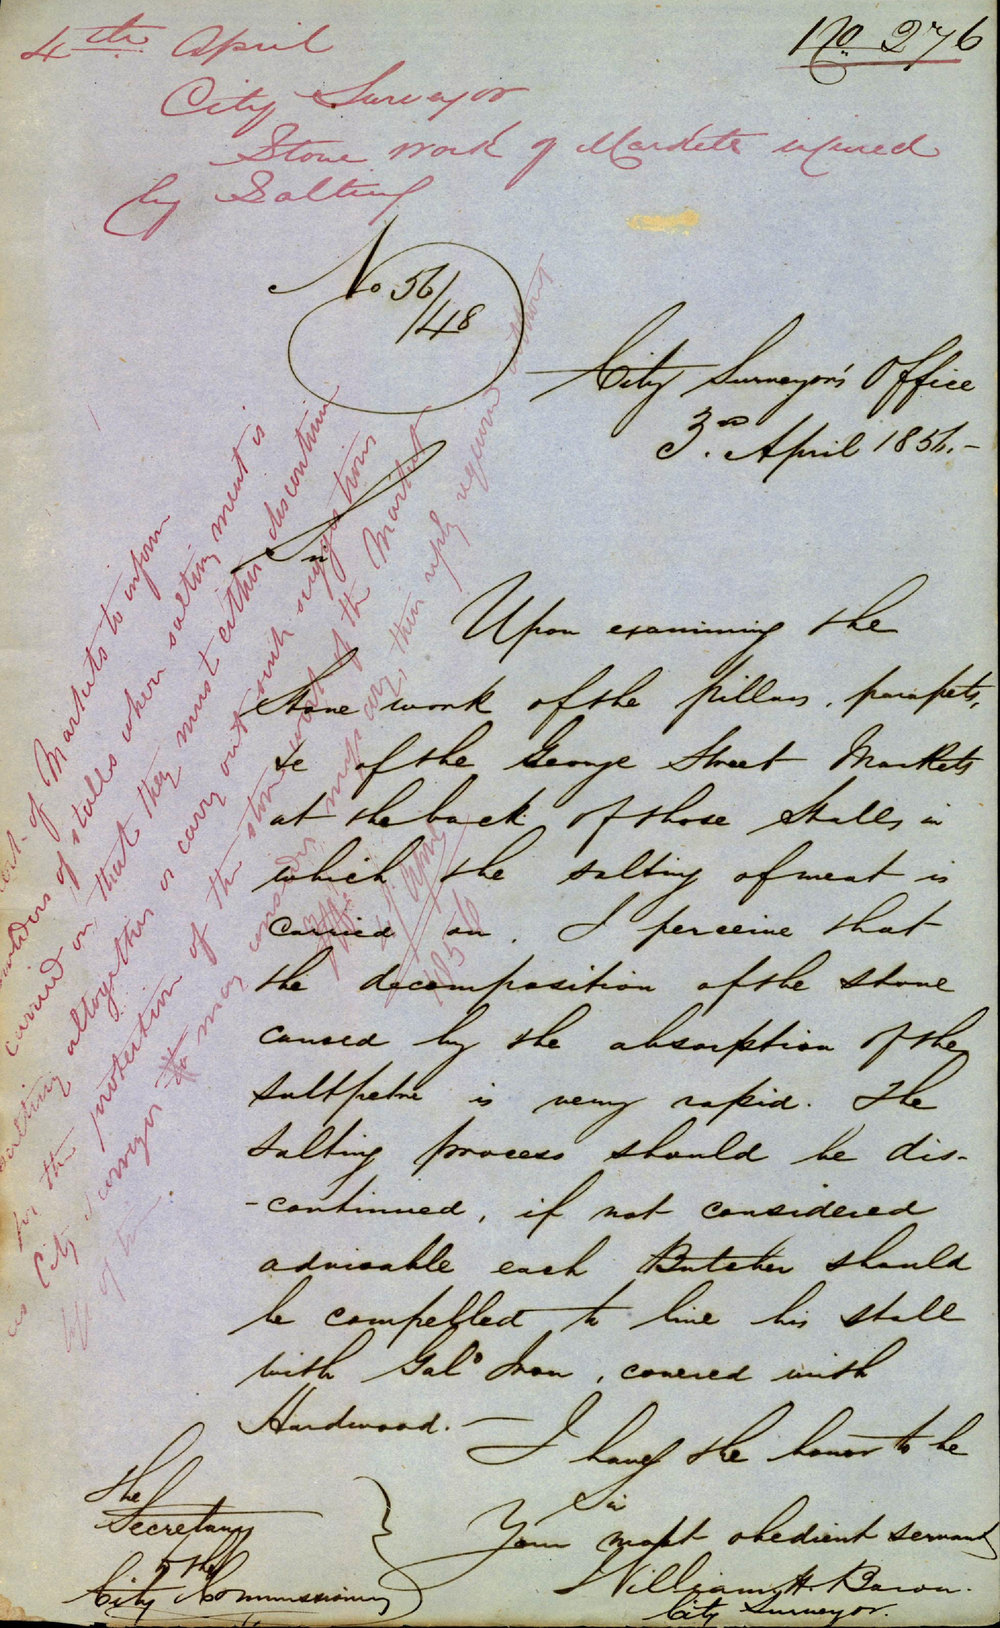 No. 276
4th April
City Surveyor
Stone work of Markets injured
by Salting
No 56/48
City Surveyor's Office
3rd April 1856.-
Sir
Upon examining the
Stone work of the pillars, parapets,
&c of the George Street Markets
at the back of those Stalls in
which the salting of meat is
carried on. I perceive that
the decomposition of the stone
caused by the absorption of the
Saltpetre is very rapid. The
Salting process should be dis-
-continued, if not considered
advisable each Butcher should
be compelled to line his stall
with Gald Iron, covered with
Hardwood. — I have the honor to be
Sir
Your most obedient servant
William H. Baron.
City Surveyor.
The
Secretary
to the
City Commissioners
of Markets to inform
holders of stalls where salting meat is
carried on that they must either discontinue
salting altogether or carry out such suggestions
for the protection of the stone work of the Market
as City Surveyor may consider necessary, their reply required without
4 April
1856